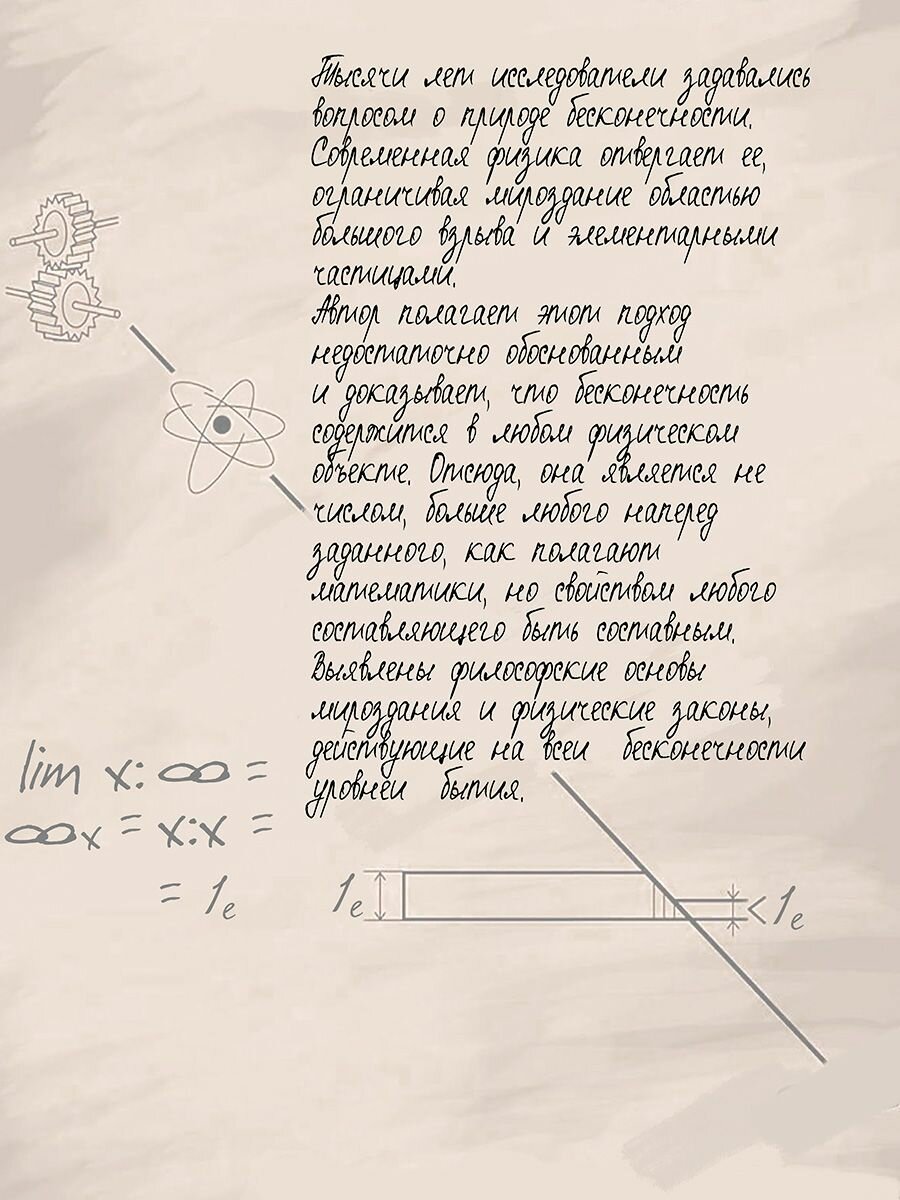 Тысячи лет исследователи задавались
вопросом о природе бесконечности.
Современная физика отвергает ее,
ограничивая мироздание областью
большого взрыва и элементарными
частицами.
Автор полагает этот подход
недостаточно обоснованным
и доказывает, что бесконечность
содержится в любом физическом
объекте. Отсюда, она является не
числом, больше любого наперед
заданного, как полагают
математики, но свойством любого
составляющего быть составным.
Выявлены философские основы
мироздания и физические законы,
действующие на всей бесконечности
уровней бытия.
lim x: ∞ =
∞x = x:x =
= 1e
1e
<1e